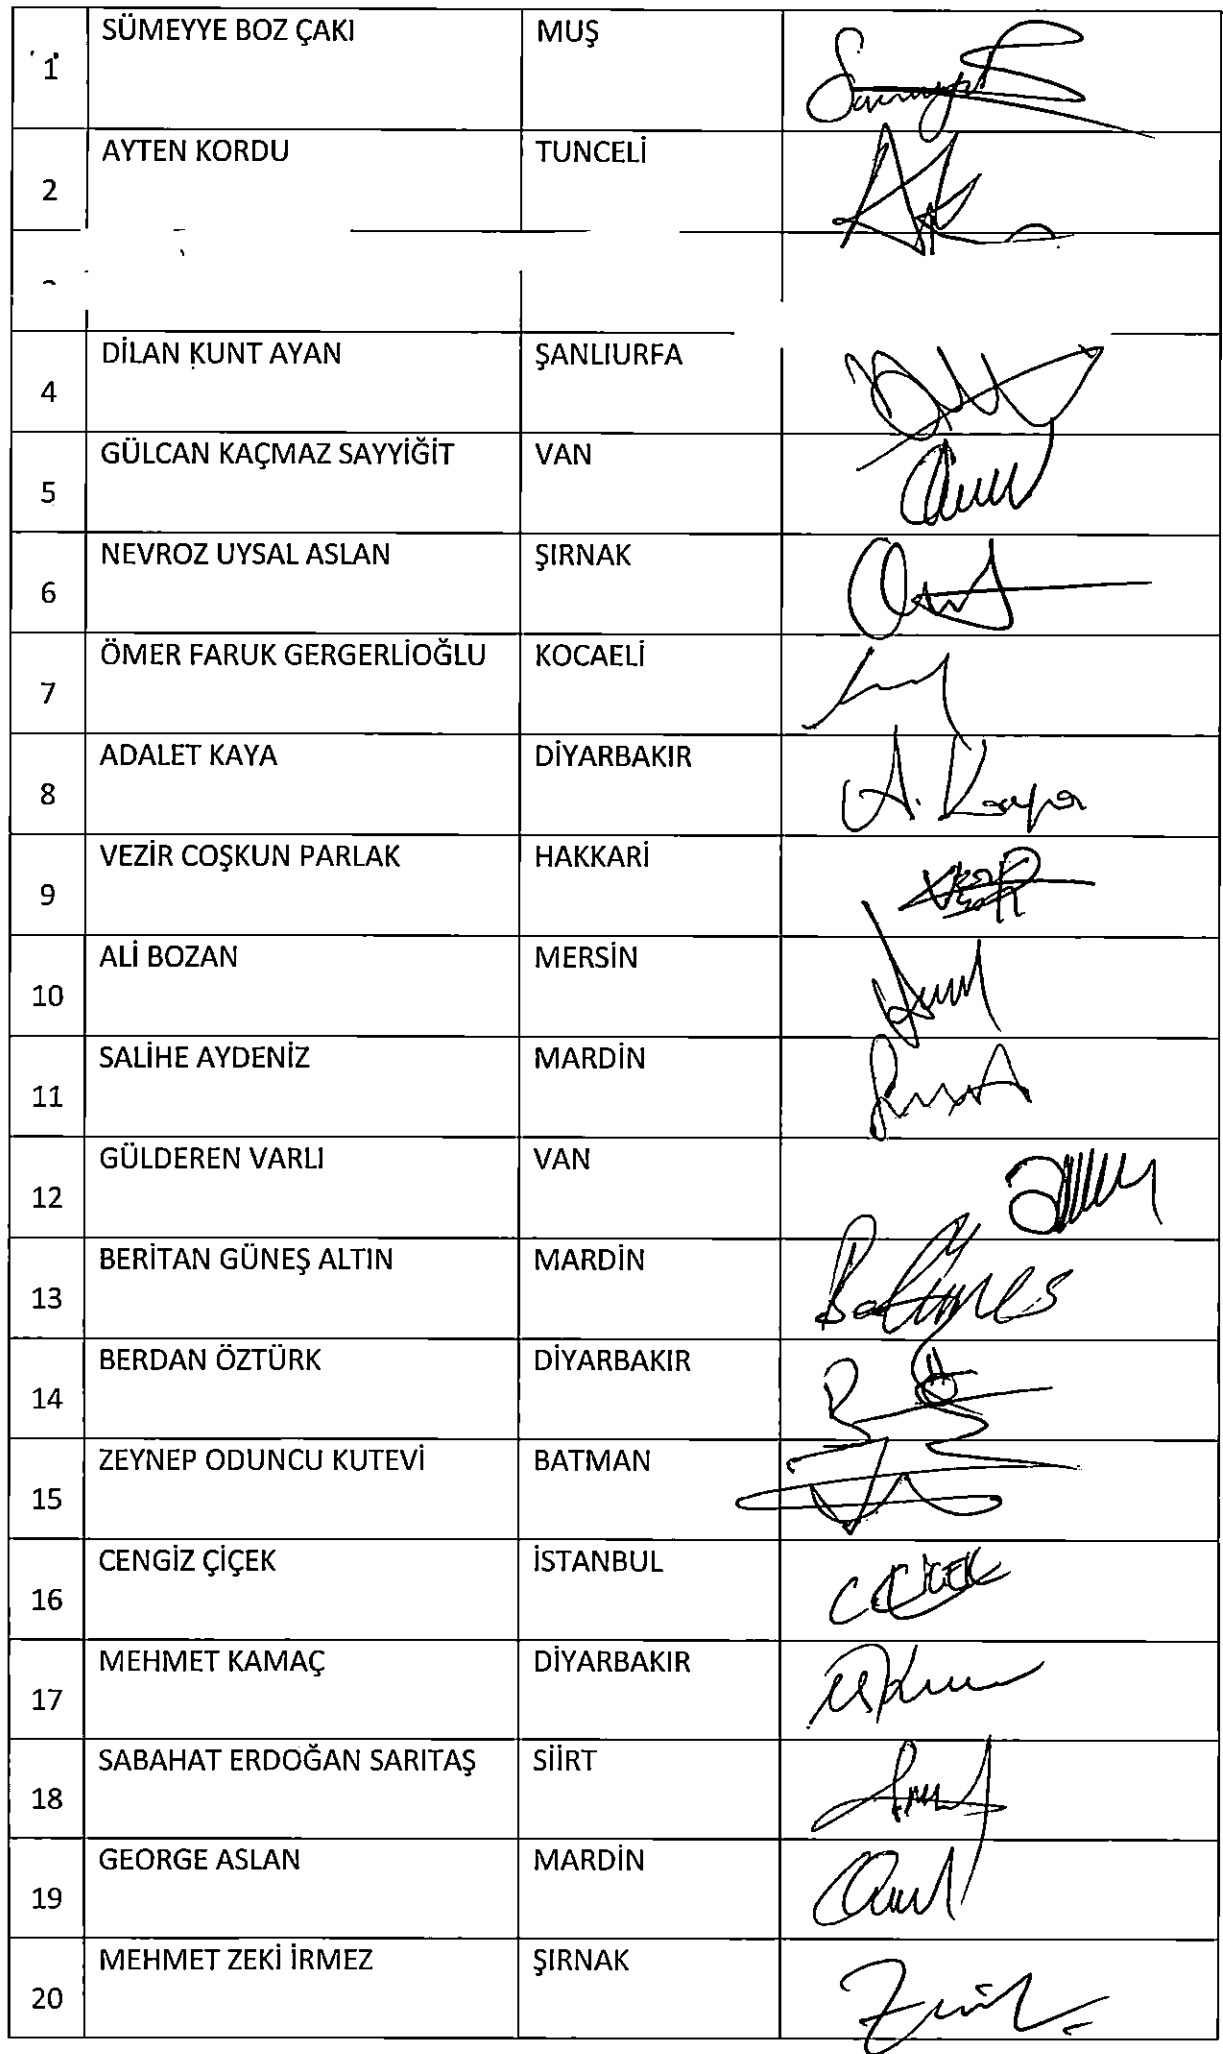 1 SÜMEYYE BOZ ÇAKI MUŞ
2 AYTEN KORDU TUNCELİ
4 DİLAN KUNT AYAN ŞANLIURFA
5 GÜLCAN KAÇMAZ SAYYİĞİT VAN
6 NEVROZ UYSAL ASLAN ŞIRNAK
7 ÖMER FARUK GERGERLİOĞLU KOCAELİ
8 ADALET KAYA DİYARBAKIR A. Kaya
9 VEZİR COŞKUN PARLAK HAKKARİ
10 ALİ BOZAN MERSİN
11 SALİHE AYDENİZ MARDİN
12 GÜLDEREN VARLI VAN
13 BERİTAN GÜNEŞ ALTIN MARDİN
14 BERDAN ÖZTÜRK DİYARBAKIR
15 ZEYNEP ODUNCU KUTEVİ BATMAN
16 CENGİZ ÇİÇEK İSTANBUL
17 MEHMET KAMAÇ DİYARBAKIR
18 SABAHAT ERDOĞAN SARITAŞ SİİRT
19 GEORGE ASLAN MARDİN
20 MEHMET ZEKİ İRMEZ ŞIRNAK